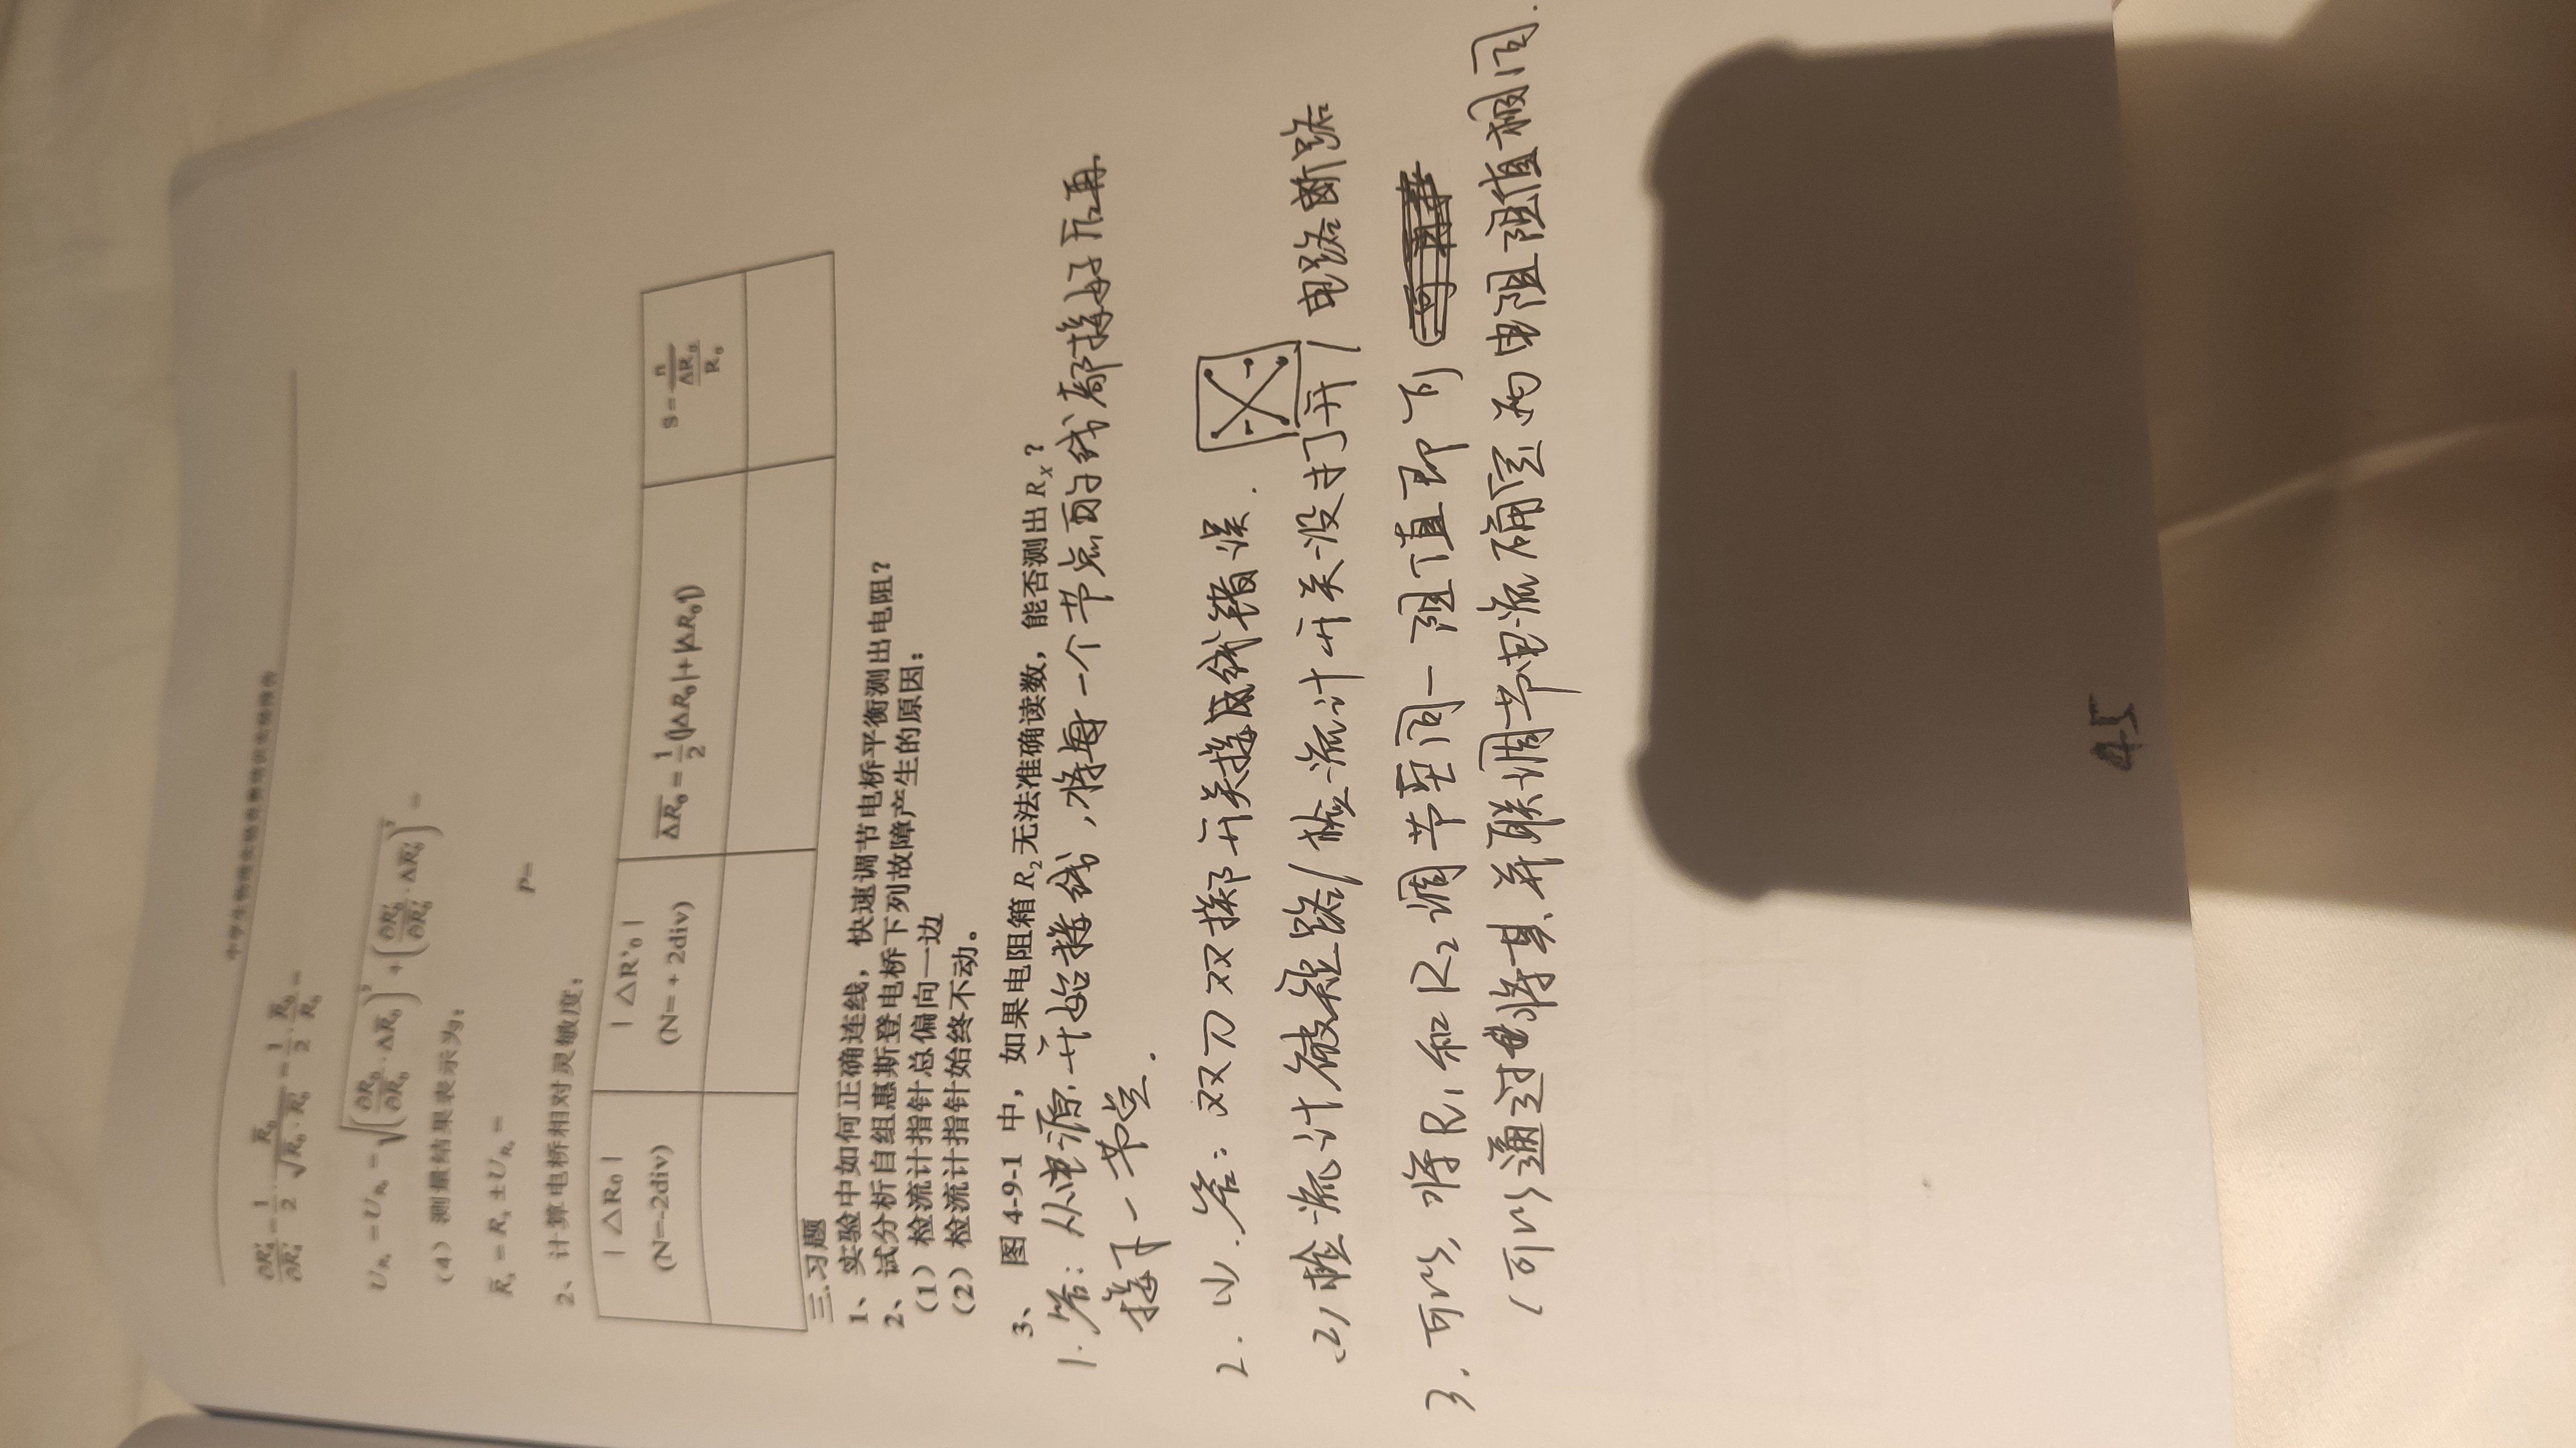 ∂R'₀/∂R'₀ = 1/2 · R₀/√(R₀·R'₀) = 1/2 · R₀/Rₓ =
(4) 测量结果表示为:
P=
2、计算电桥相对灵敏度:
|△R₀| (N=-2div) |△R'₀| (N=+2div) ΔR₀=1/2(|ΔR₀|+|ΔR₀'|) S=n/(ΔR₀/R₀)
三.习题
1、实验中如何正确连线，快速调节电桥平衡测出电阻?
2、试分析自组惠斯登电桥下列故障产生的原因:
(1) 检流计指针总偏向一边
(2) 检流计指针始终不动。
3、图 4-9-1 中，如果电阻箱 R₂无法准确读数，能否测出 Rₓ?
1.答:从电源开始接线,将每一个节点的线都接好后再
接下一节点.
2.(1).答:双刀双掷开关接线错误.
(2)检流计被短路/检流计开关没打开/电路断路
3.可以,将R₁和R₂调节至同一阻值即可
(可以通过将其并联调节电流确定两电阻阻值相同.
45